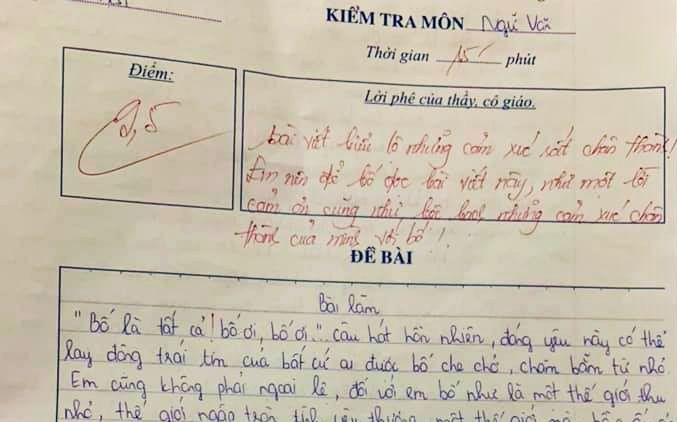 KIỂM TRA MÔN Ngữ Văn
Thời gian 15' phút
Điểm:
Lời phê của thầy, cô giáo.
bài viết biểu lộ những cảm xúc rất chân thành!
Em nên để bố đọc bài viết này, như một lời
cảm ơn cũng như bộc bạch những cảm xúc chân
thành của mình với bố!
ĐỀ BÀI
Bài làm
"Bố là tất cả! bố ơi, bố ơi..." câu hát hồn nhiên, đáng yêu này có thể
lay động trái tim của bất cứ ai được bố che chở, chăm bẵm từ nhỏ.
Em cũng không phải ngoại lệ, đối với em bố như là một thế giới thu
nhỏ, thế giới ngập tràn tình yêu thương, một thế giới mà